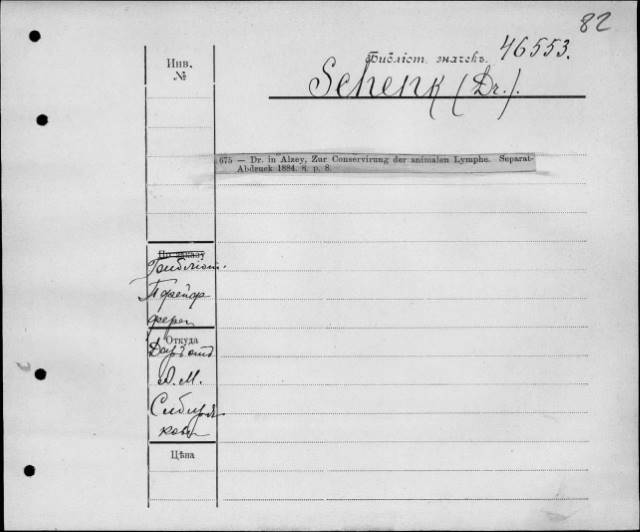 82
Инв. №
Библіот. значекъ. 46553.
Schenk (Dr.).
675 — Dr. in Alzey, Zur Conservirung der animalen Lymphe. Separat-
Abdruck 1884. 8. p. 8.
По заказу
Библіот.
Пфейф
фера
Откуда
Даръ отъ
А. М.
Сибиря
кова
Цѣна